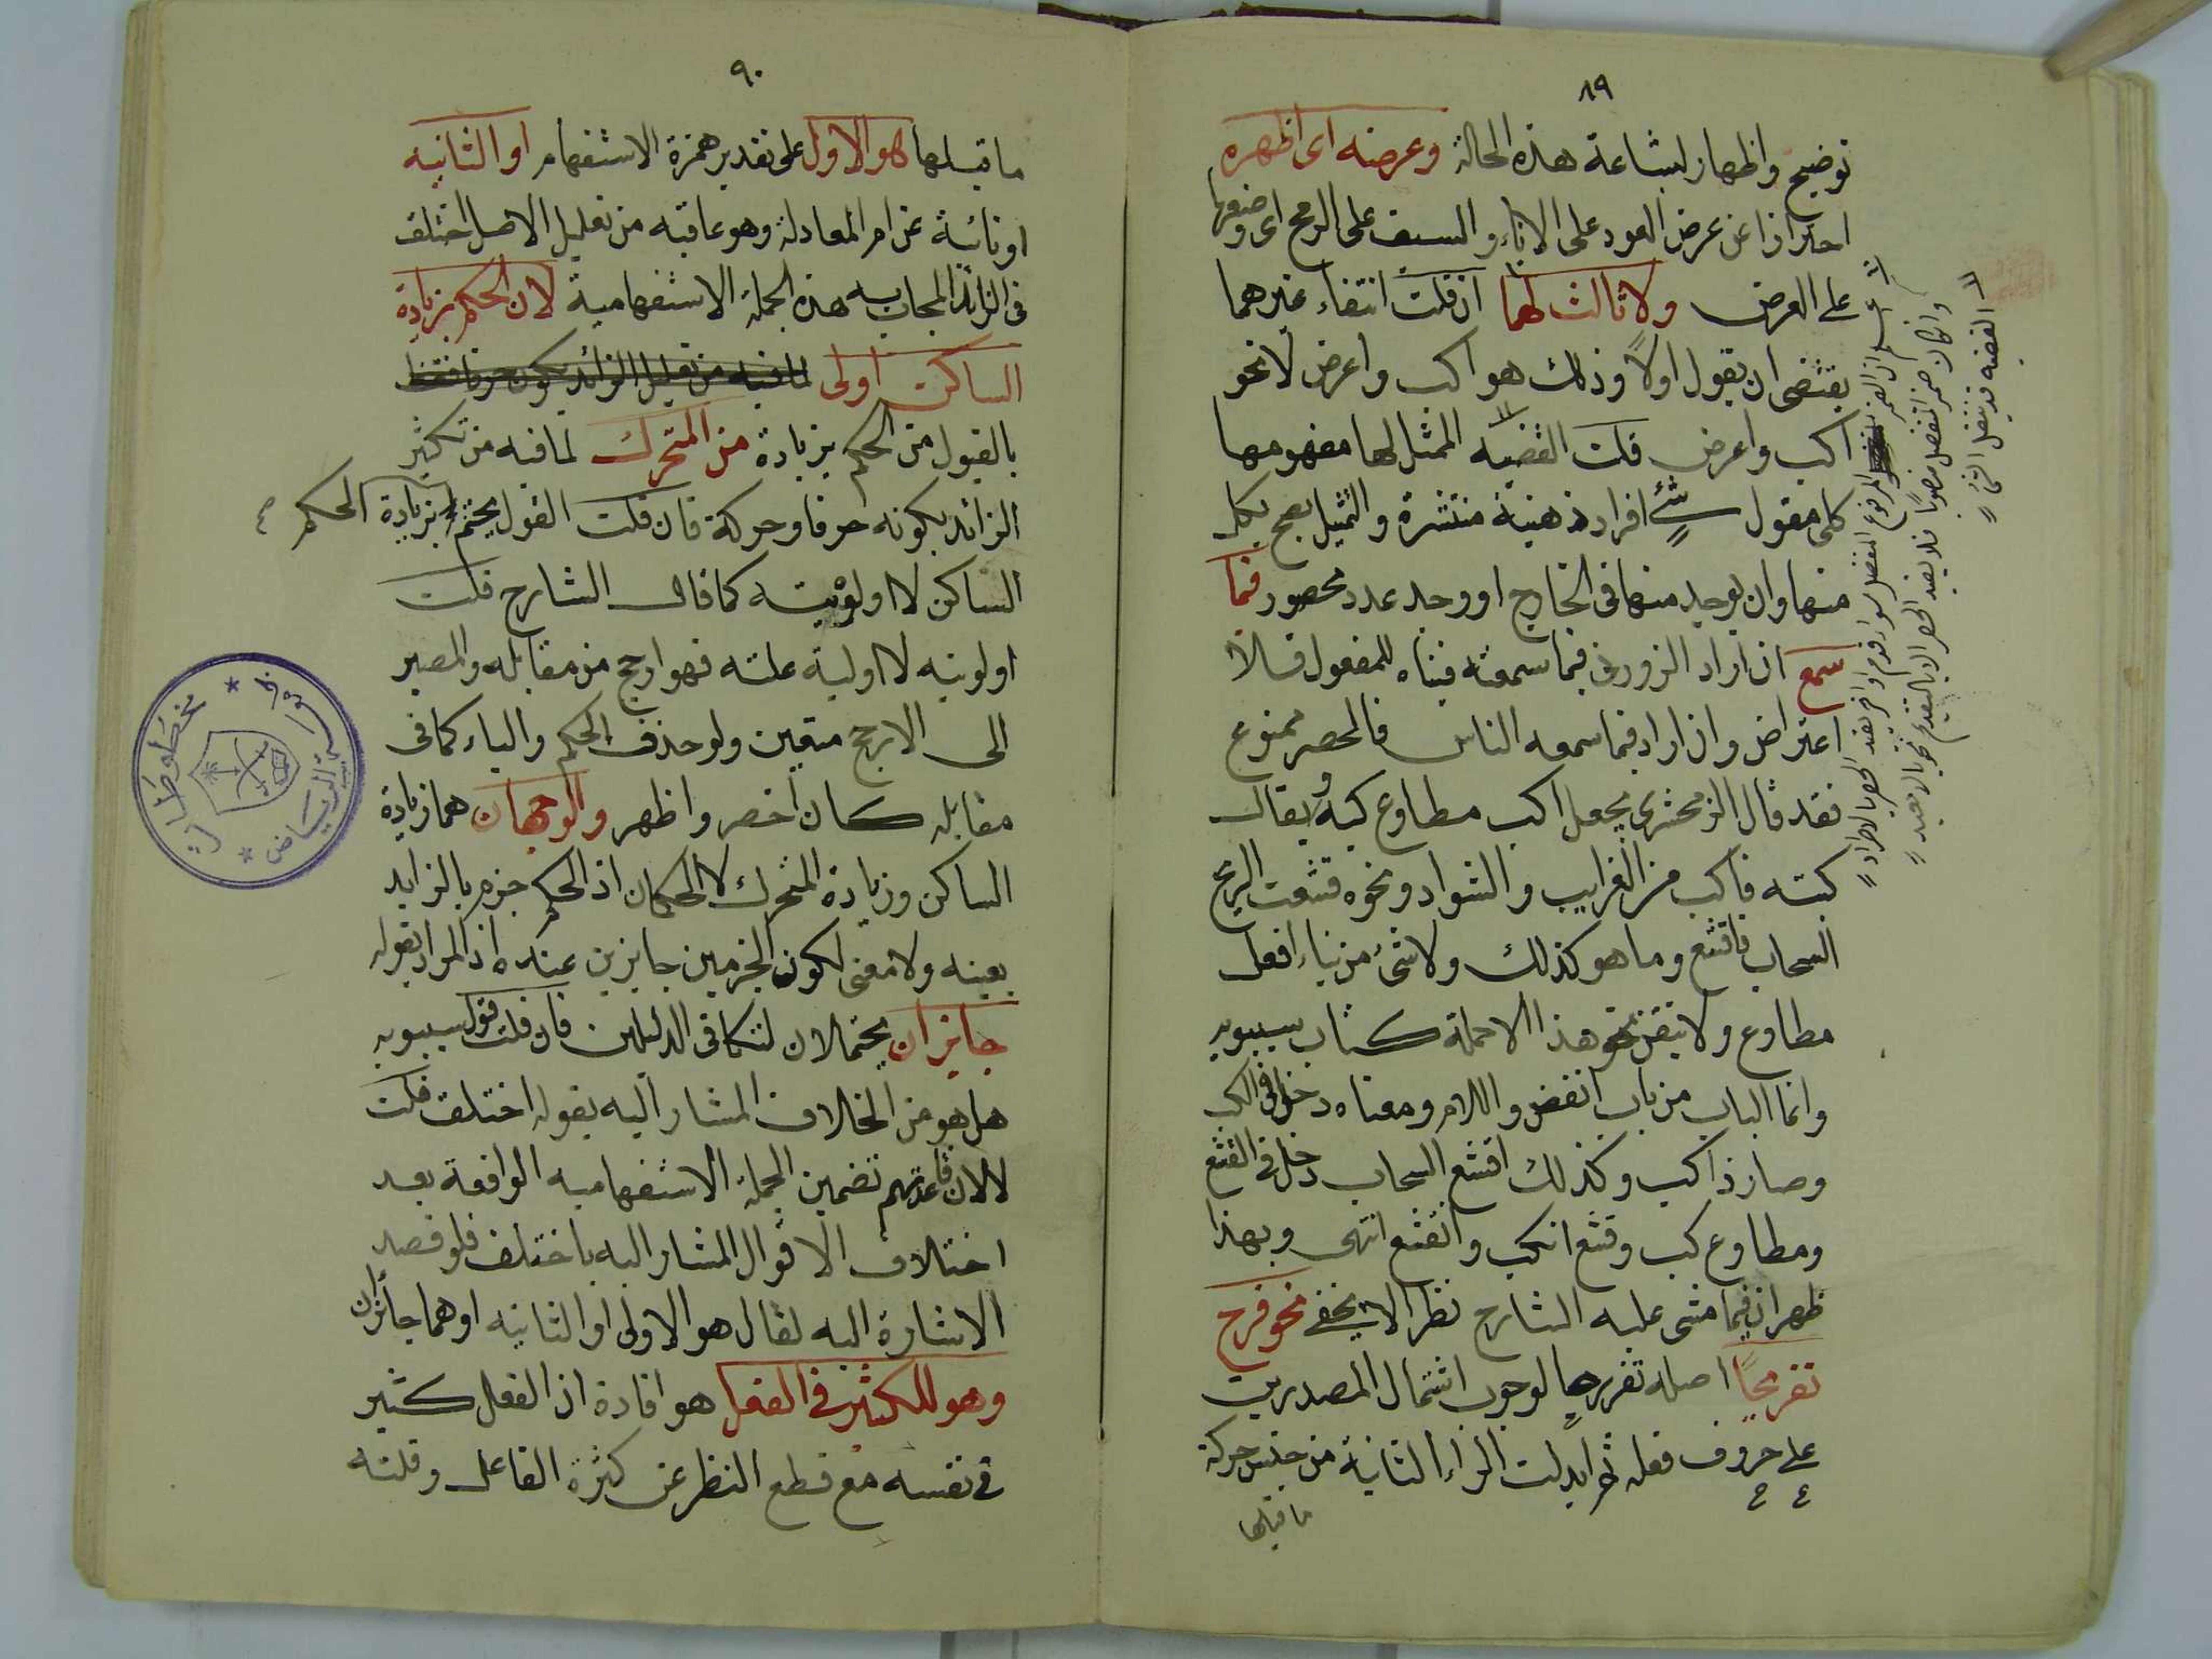 ٨٩
توضيح واظهار لبشاعة هذه الحالة وعرضه اى اظهره
احترازا عن عرض العود على الاناء والسيف على الرمح اى وضعها
على العرض ولا ثالث لهما ان قلت انتفاء غيرهما
يقتضى ان يقول اولا وذلك هو اكب واعرض لا نحو
اكب واعرض قلت القضية الممثل لها مفهومها
كلى مقول افراد ذهنية منتشرة والتمثيل يصح بكل
منها وان لم يوجد منها فى الخارج او وجد عدد محصور فيما
سمع ان اراد الزوزنى فيما سمعته فبناه للمفعول فلا
اعتراض وان اراد فيما سمعه الناس فالحصر ممنوع
فقد قال الزمخشرى يجعل اكب مطاوع كبه يقال
كببته فاكب من الغرايب والشواذ ونحوه قشعت الريح
السحاب فاقشع وما هو كذلك ولا شئ من بناء افعل
مطاوع ولا يتقن نحو هذا الا حملة كتاب سيبويه
وانما الباب من باب انفض والام ومعناه دخل فى الكب
وصار ذا كب وكذلك اقشع السحاب دخل فى القشع
ومطاوع كب وقشع انكب وانقشع انتهى وبهذا
ظهر ان فيما مشى عليه الشارح نظرا لا يخفى نحو فرح
تفريحا اصله تفررحا لوجوب اشتمال المصدرين
على حروف فعله ثم ابدلت الراء الثانية من جنس حركة
ما قبلها
المرفوع المنفصل سواء قدم او اخر يفيد الحصر بالاطراد
وان كان ضمير المنفصل منصوبا فلا يفيد الحصر الا بالتقديم نحو اياك نعبد
٩٠
ما قبلها هو الاول على تقدير همزة الاستفهام او الثانية
او نائبة عن ام المعادلة وهو عاقبه من تعليل الاصل اختلف
فى الزائد المجاب به هذه الجملة الاستفهامية لان الحكم بزيادة
الساكن اولى لما فيه من تقليل الزائد بكونه حرفا فقط
بالقبول من الحكم بزيادة من المتحرك لما فيه من تكثير
الزائد بكونه حرفا وحركة فان قلت القول بزيادة الحكم
الساكن لا اولويته كما قال الشارح قلت
اولويته لا اولية علته فهو ارجح من مقابله والمصير
الى الارجح متعين ولو حذف الحكم والباء كما فى
مقابله كان اخصر واظهر والوجهان هما زيادة
الساكن وزيادة المتحرك لا الحكمان اذ الحكم جزم بالزايد
بعينه ولا معنى لكون الجزمين جايزين عنده اذ المراد بقوله
جائزان يحتملان لتكافى الدليلين فان قلت قول سيبويه
هل هو من الخلاف المشار اليه بقوله اختلف قلت
لا لان قاعدتهم تضمين الجملة الاستفهاميه الواقعة بعد
اختلاف الاقوال المشار اليه باختلف فلو قصد
الاشارة اليه لقال هو الاولى او الثانيه او هما جائزان
وهو للتكثير فى الفعل هو افادة ان الفعل كثير
فى نفسه مع قطع النظر عن كثرة الفاعل وقلته
مخطوطات
الرياض